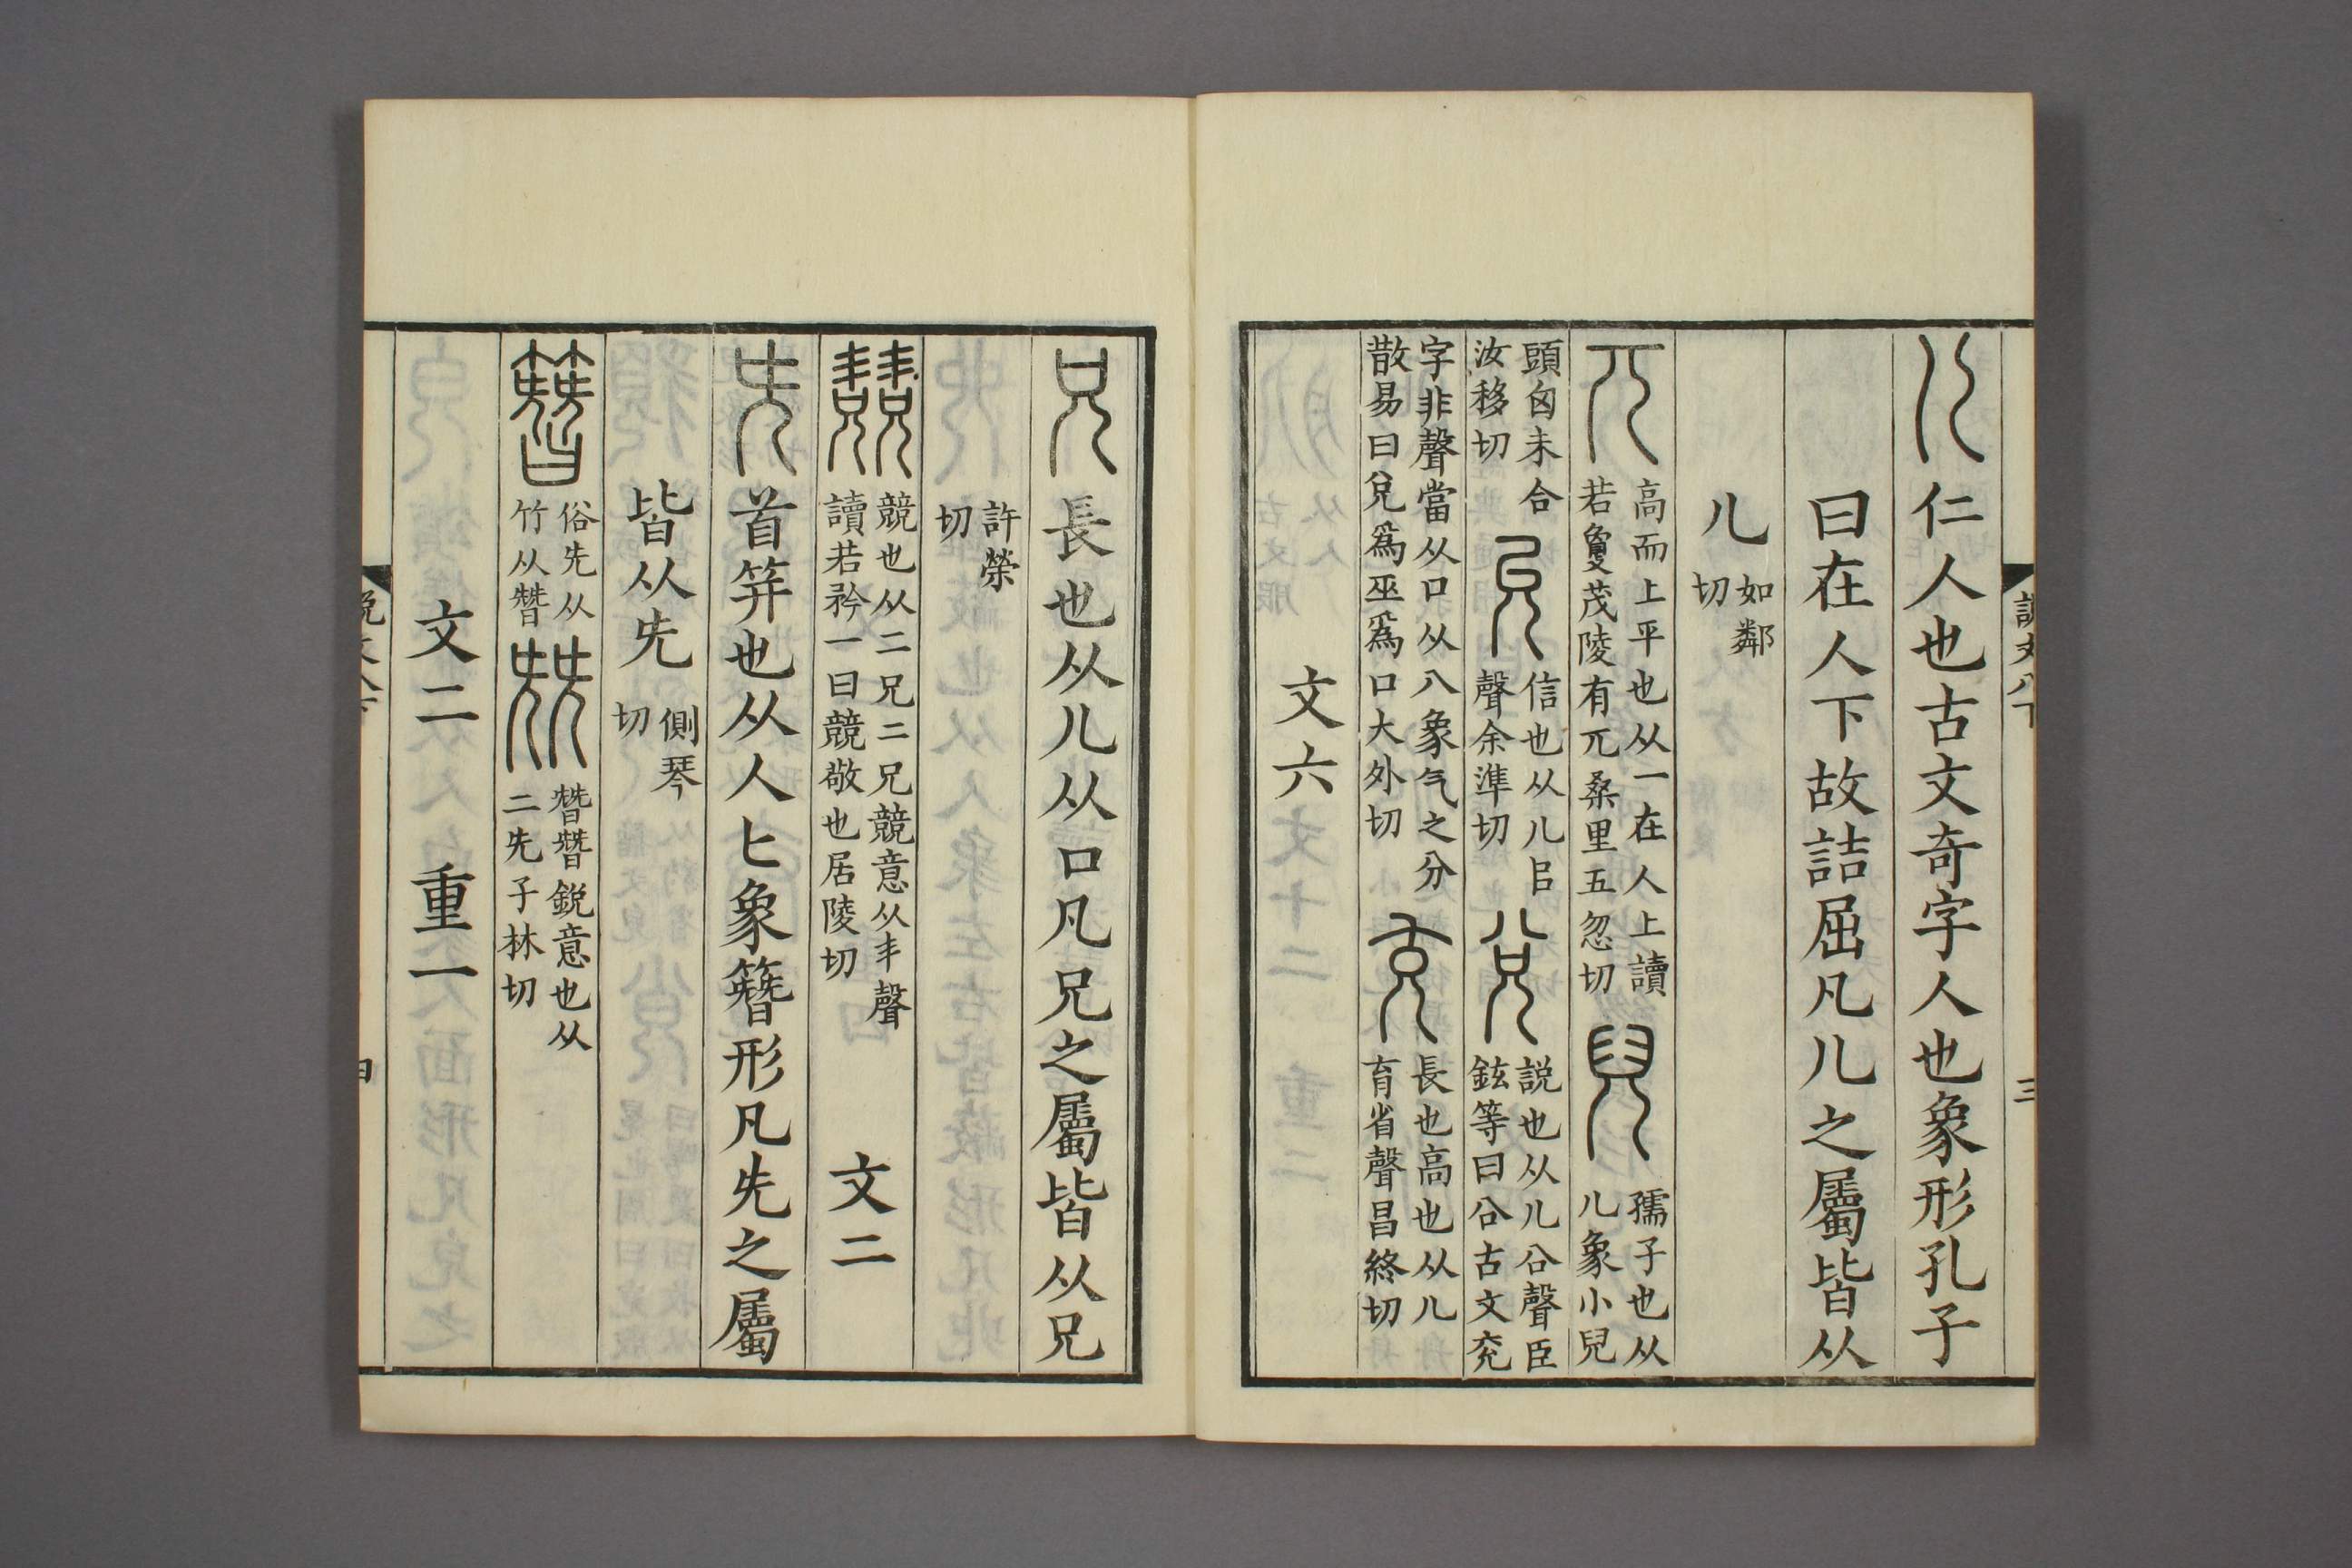 儿仁人也古文奇字人也象形孔子
曰在人下故詰屈凡儿之屬皆从
儿如鄰切
兀高而上平也从一在人上讀若敻茂陵有兀桑里五忽切 兒孺子也从儿象小兒
頭囟未合汝移切 允信也从儿㠯聲余準切 兌説也从儿㕣聲臣鉉等曰㕣古文兖
字非聲當从口从八象气之分散易曰兌爲巫爲口大外切 充長也高也从儿育省聲昌終切
文六
説文八下
三
兄長也从儿从口凡兄之屬皆从兄
許榮切
競也从二兄二兄競意从丰聲讀若矜一曰競敬也居陵切 文二
兂首笄也从人匕象簪形凡兂之屬
皆从兂側琴切
簪俗兂从竹从朁 兓朁朁鋭意也从二兂子林切
文二 重一